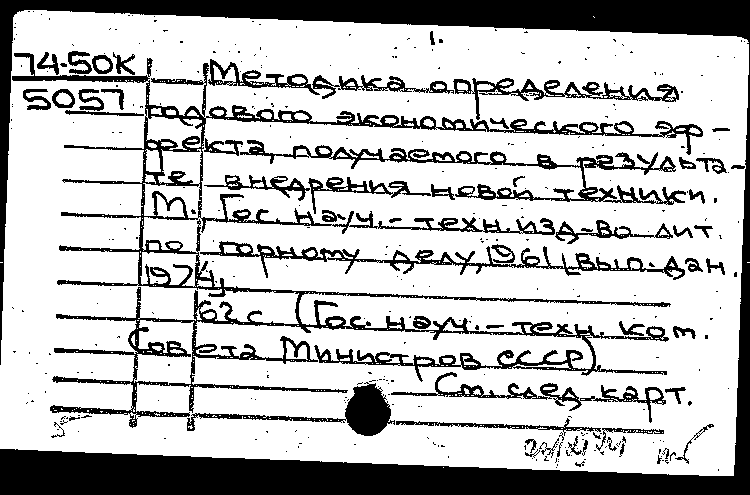 1.
74-50К Методика определения
5057 годового экономического эф-
фекта, получаемого в результа-
те внедрения новой техники.
М., Гос. науч.-техн. изд-во лит.
по горному делу, 1961 [вып. дан.
1974],
62 с (Гос. науч.-техн. ком.
Совета Министров СССР).
См. след. карт.